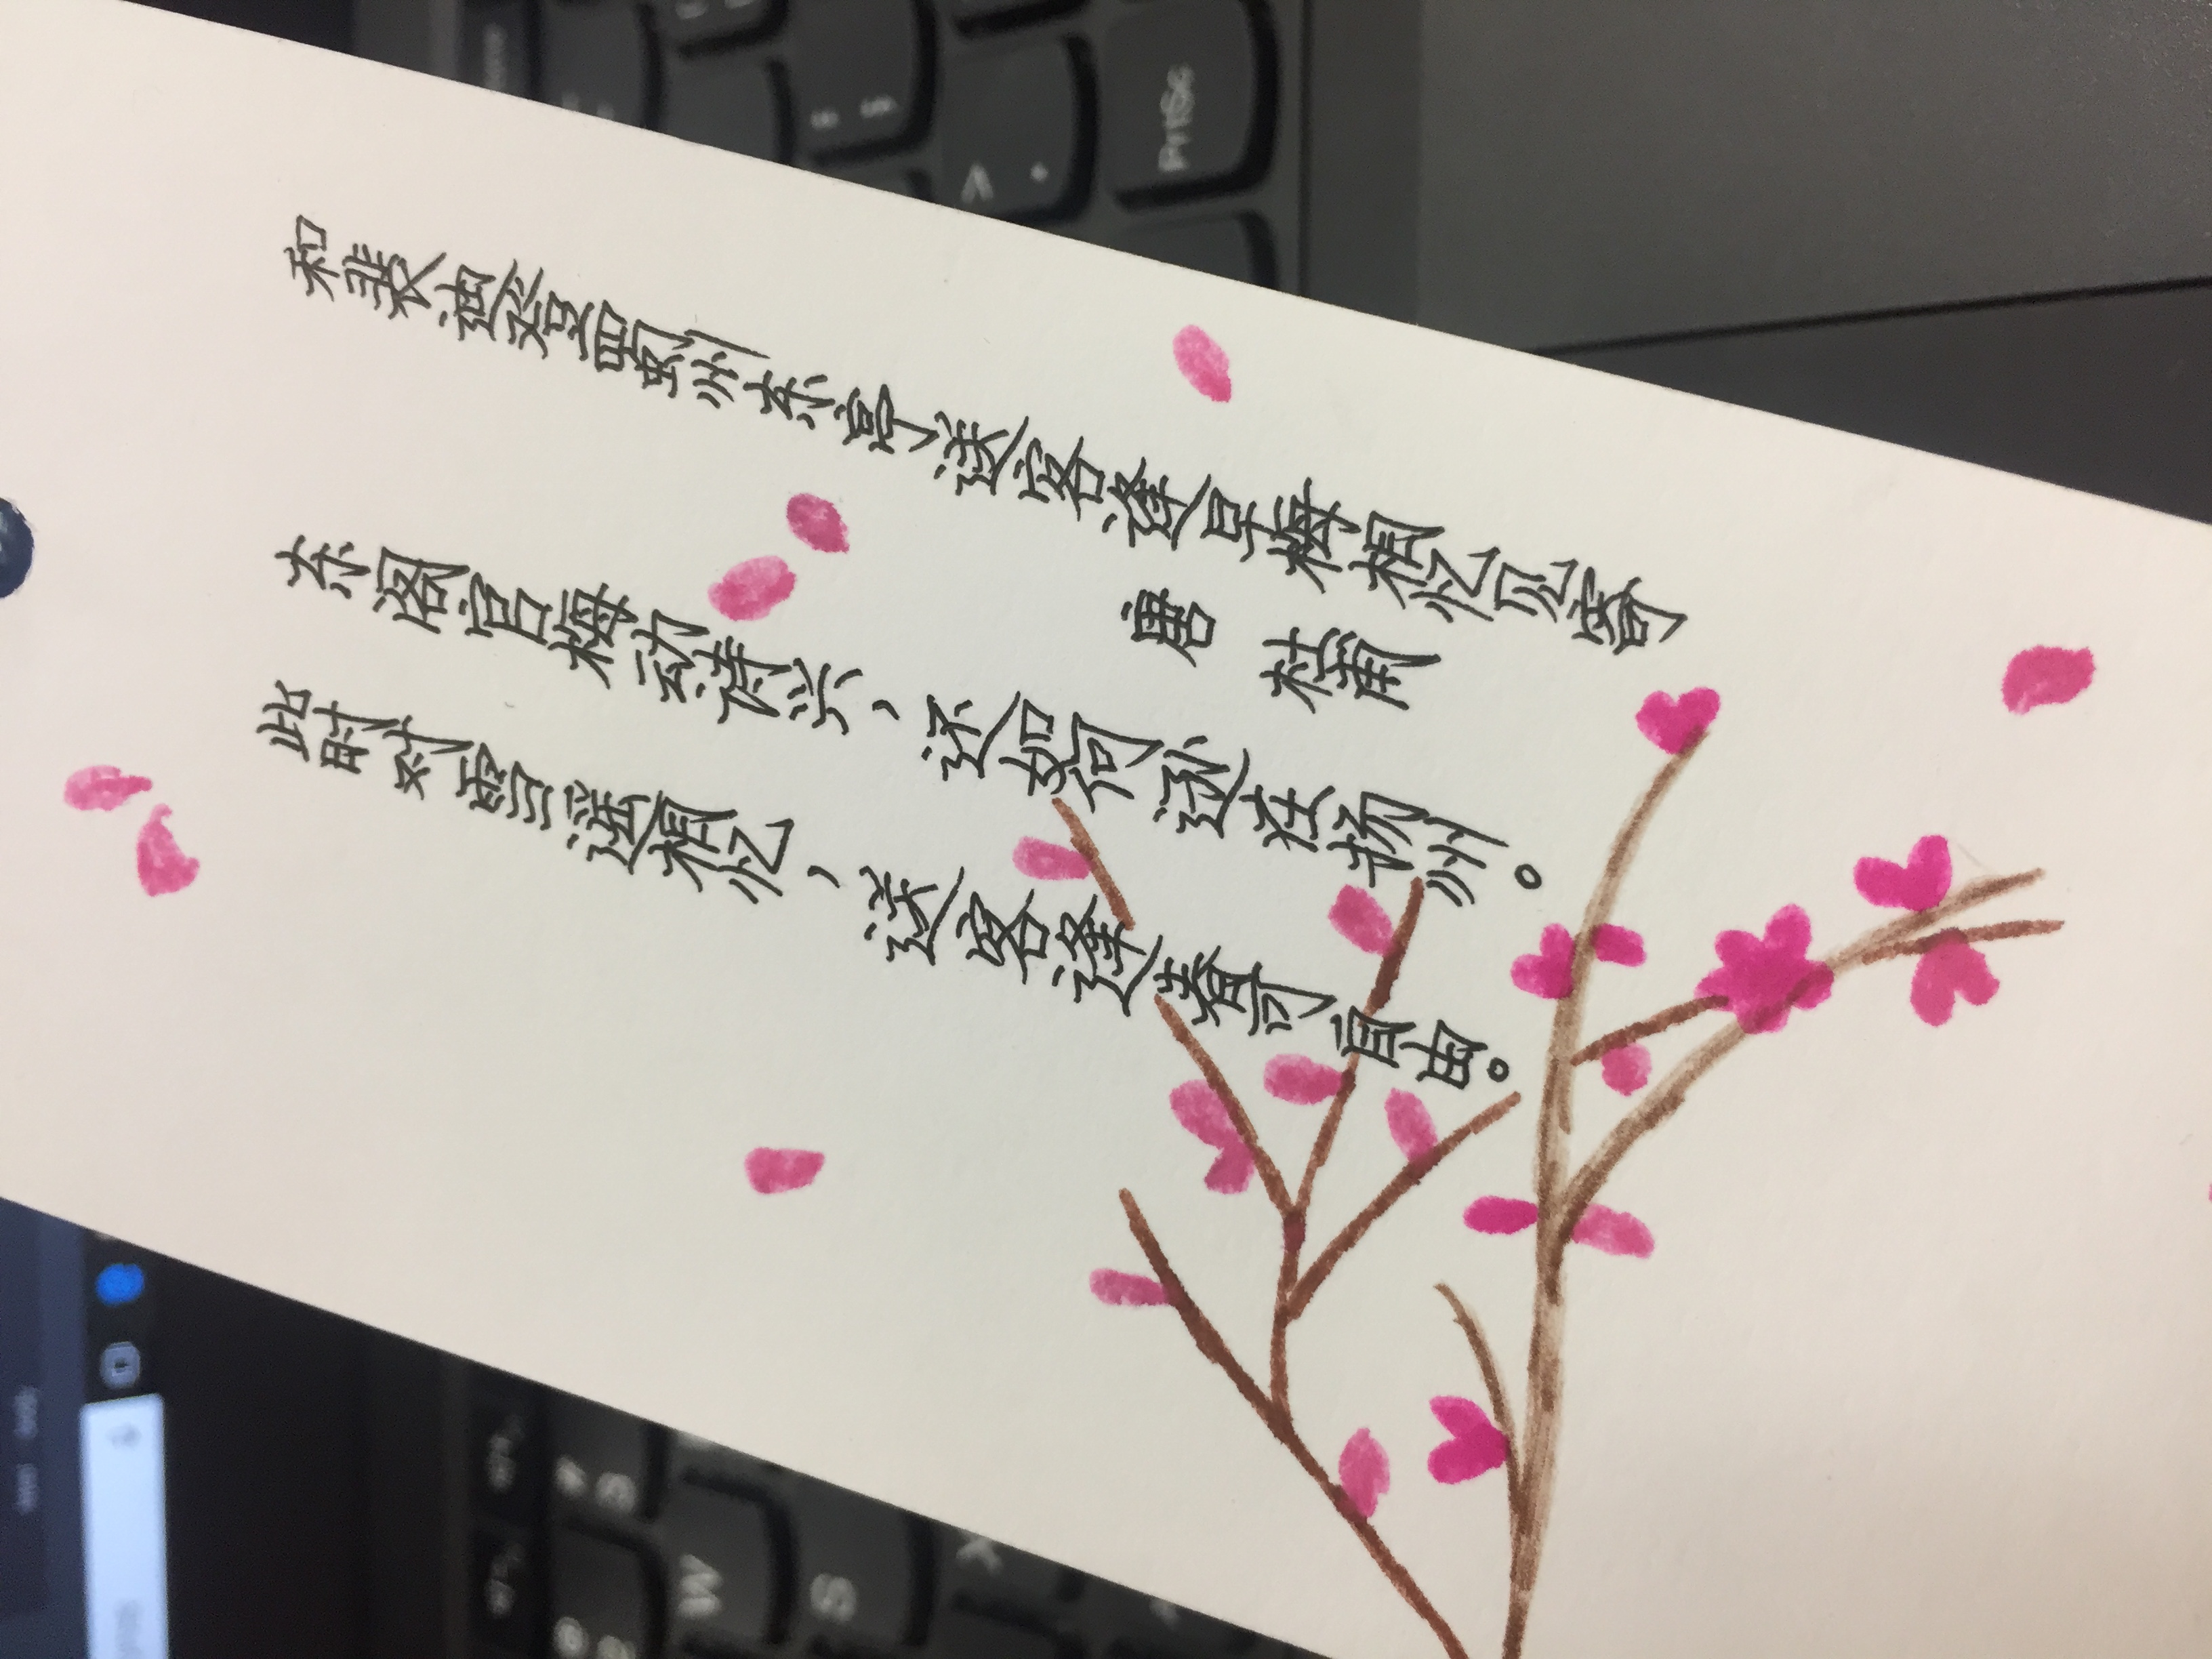 和裴迪登蜀州东亭送客逢早梅相忆见寄
唐 杜甫
东阁官梅动诗兴，还如何逊在扬州。
此时对雪遥相忆，送客逢春可自由。
W
S
X
PrtSc